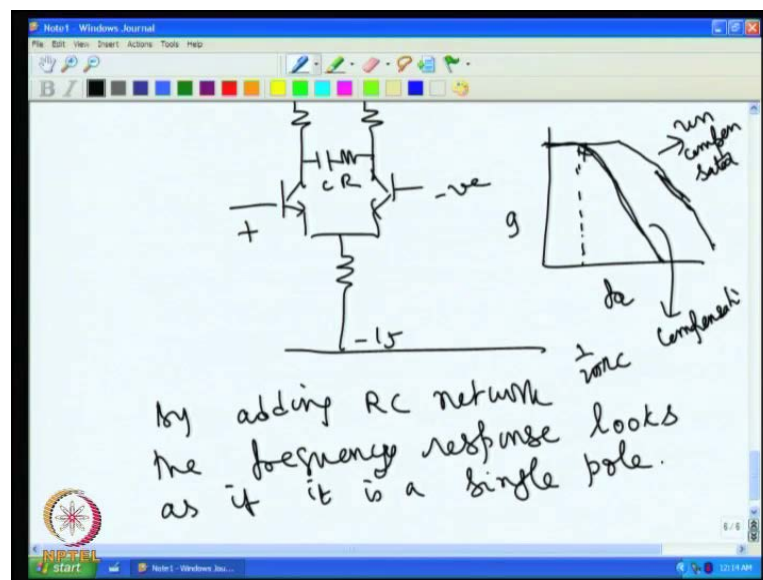 Note1 - Windows Journal
File Edit View Insert Actions Tools Help
B I
C R
+
-ve
-15
g
un
compen
sated
1
2πRC
By adding RC network
the frequency response looks
as if it is a single pole.
6/6
NPTEL
start
Note1 - Windows Jou...
12:14 AM